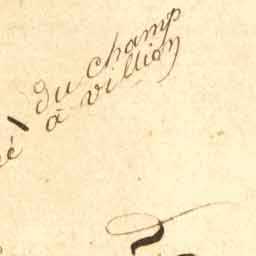 du champ
é à villion